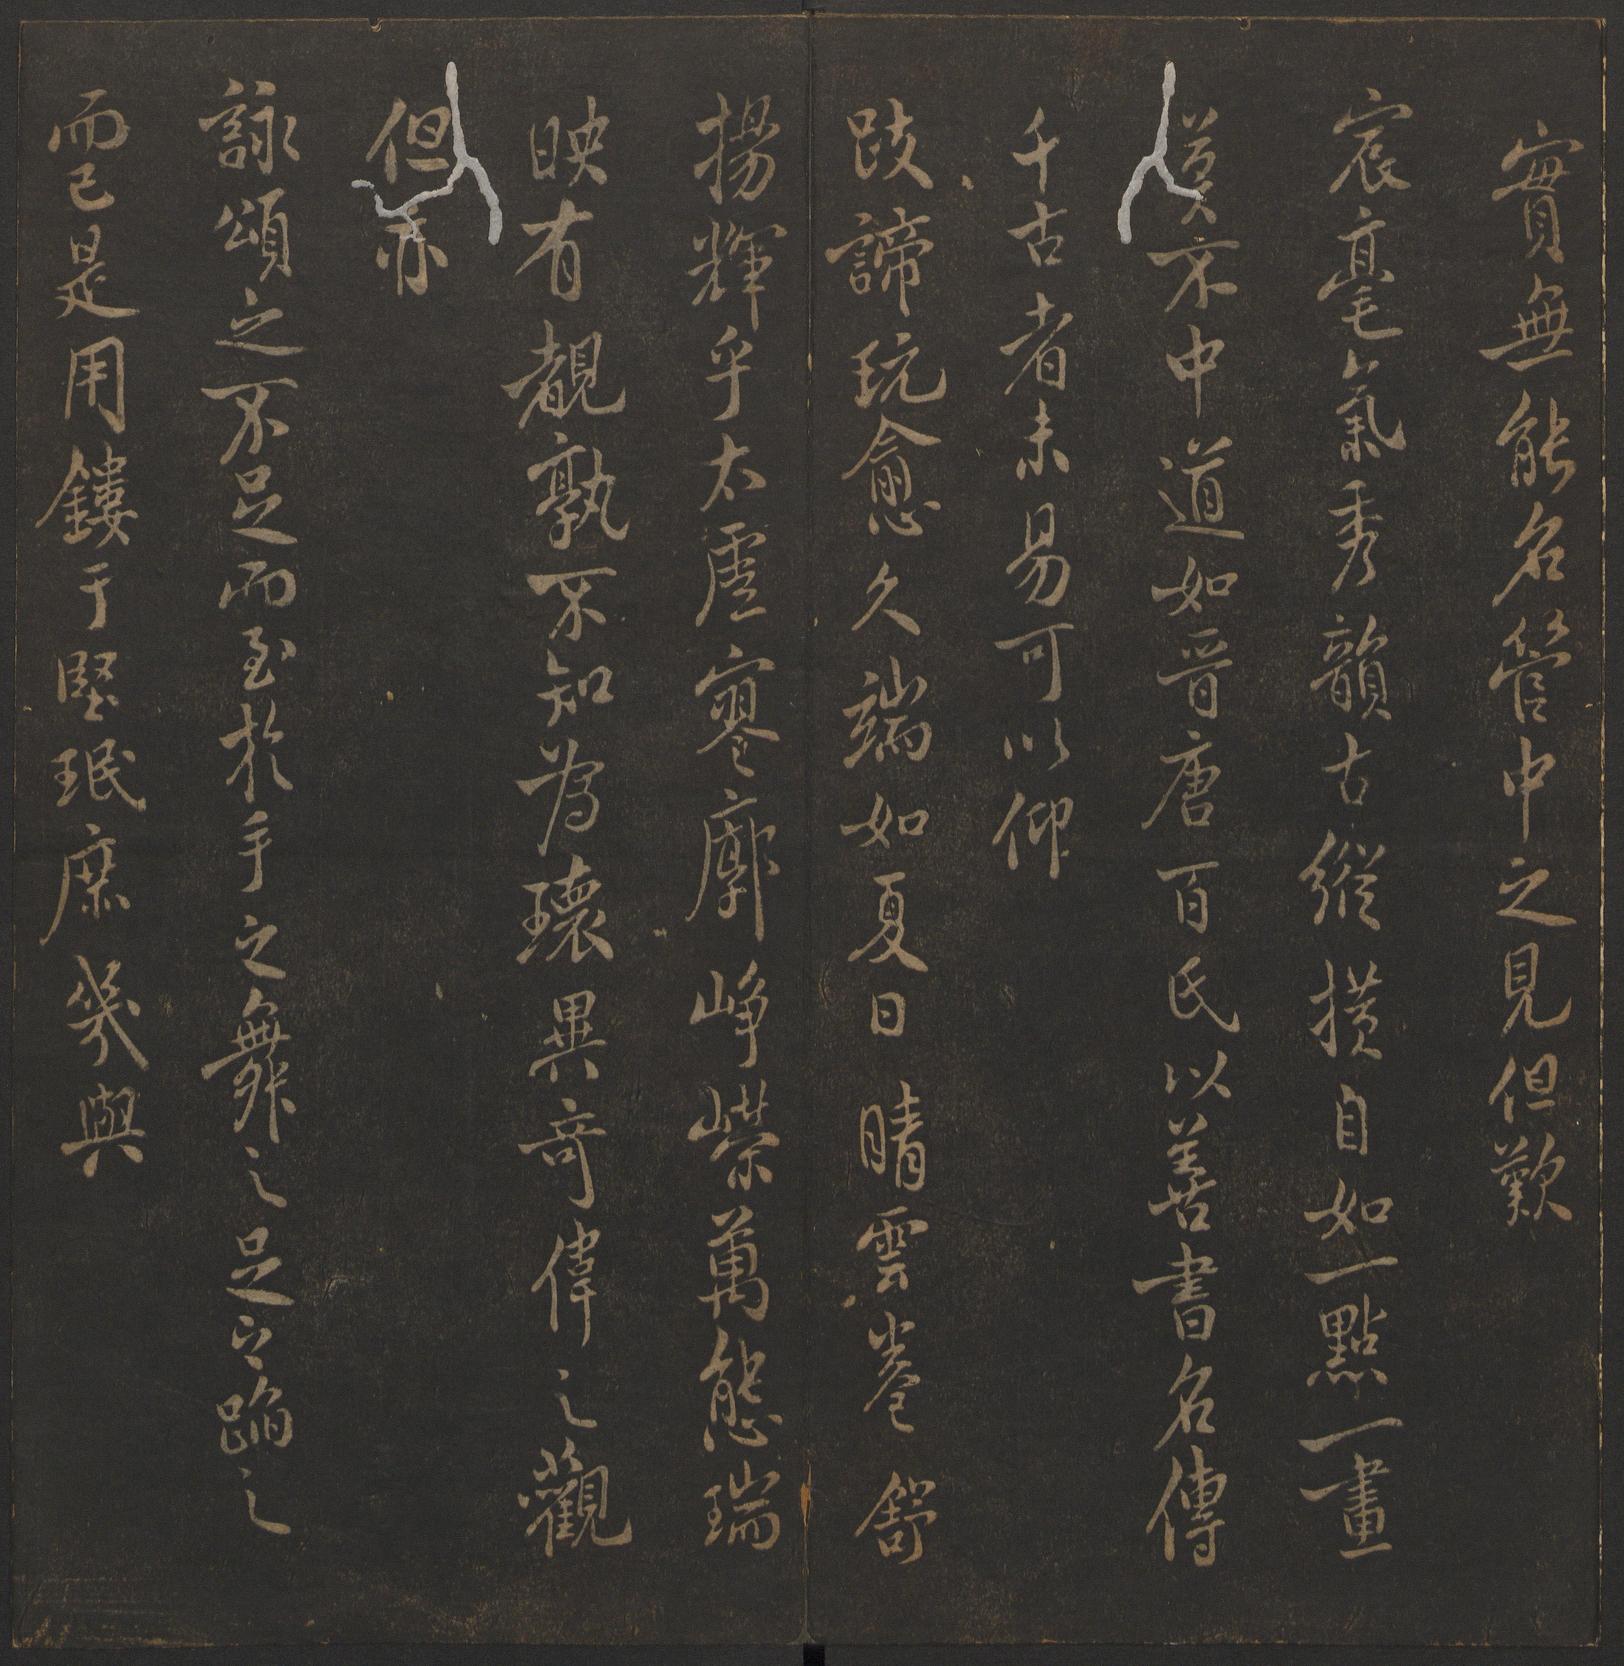 實無能名管中之見但歎
宸毫氣秀韻古縱橫自如一點一畫
莫不中道如晉唐百氏以善書名傳
千古者未易可以仰
跂諦玩愈久端如夏日晴雲卷舒
揚輝乎太虛寥廓崢嶸萬態瑞
映有觀孰不知為瓌異奇偉之觀
但亦
詠頌之不足而至於手之舞之足之蹈之
而已是用鏤于堅珉庶幾與